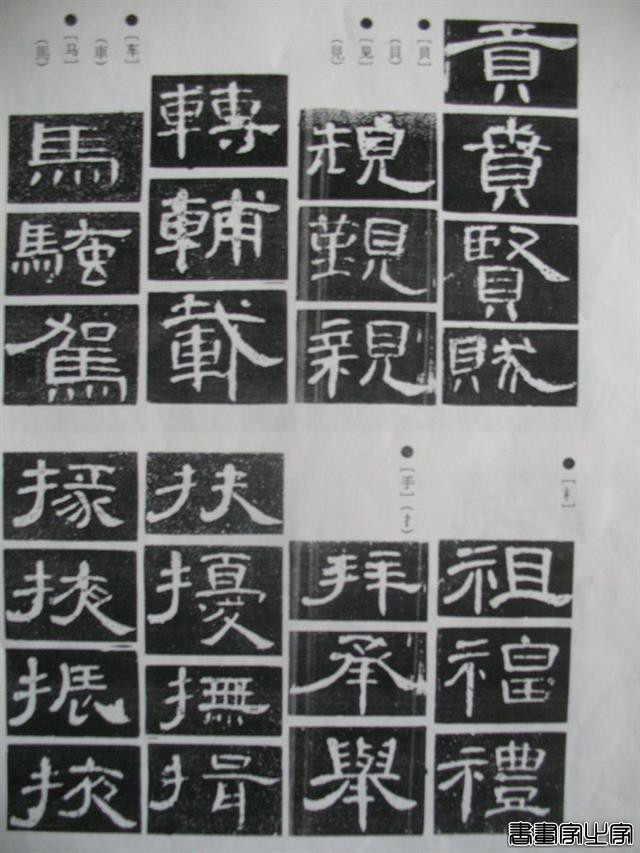 貢
賁
賢
●[贝]
(貝)
●[见]
(見)
規
覲
親
轉
輔
載
●[车]
(車)
●[马]
(馬)
馬
騷
駕
●[礻]
祖
福
禮
●[手](扌)
拜
承
舉
扶
擾
撫
揖
掾
掖
振
掖
書畫家之家